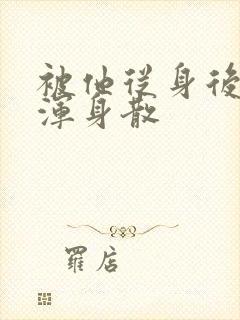 被他从身後
渾身散
羅店